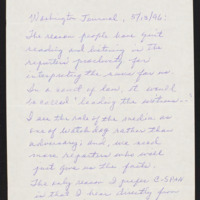 Washington Journal, 8/12/96:
The reason people have quit
reading and listening is the
reporters' proclivity for
interpreting the news for us.
In a court of law, it would
be called "leading the witness."
I see the role of the media as
one of watchdog rather than
adversary; and, we need
more reporters who will
just give us the facts.
The only reason I prefer C-SPAN
is that I hear directly from